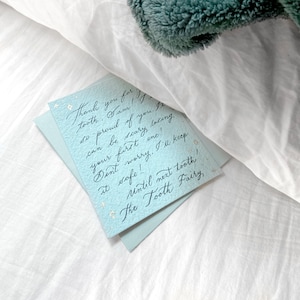 Thank you for
tooth
so proud of you
can be scary losing
your first one!
Don't worry, I'll keep
it safe!
Until next tooth!
The Tooth Fairy